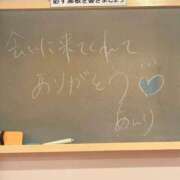 会いに来てくれて
ありがとう
あんり